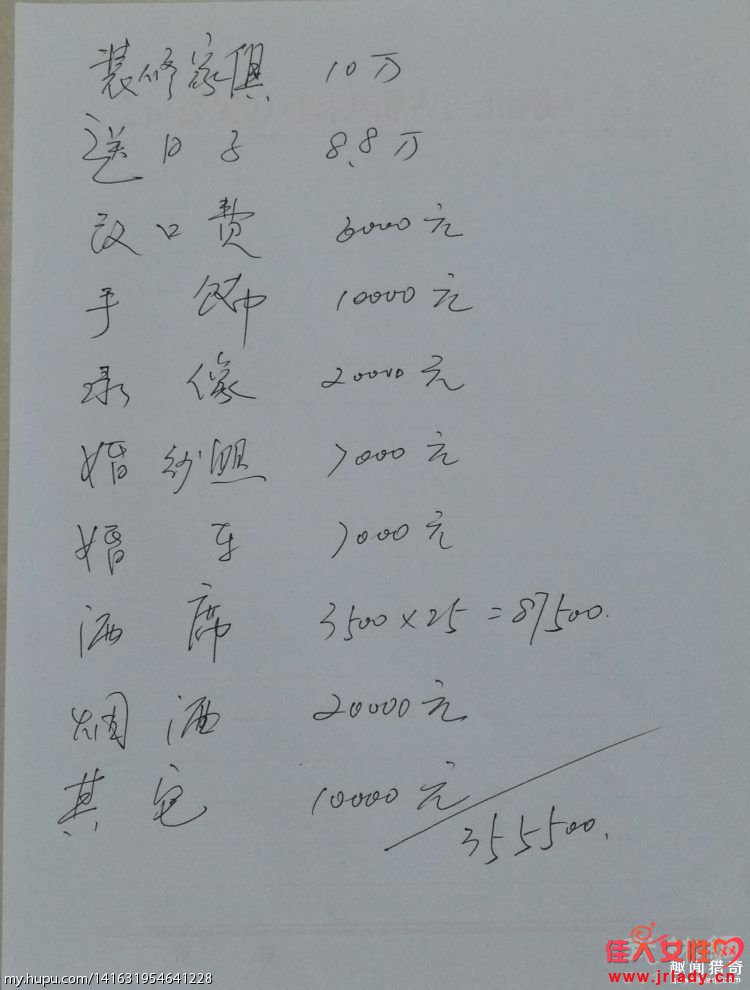 装修家俱 10万
送日子 8.8万
改口费 6000元
手饰 10000元
录像 20000元
婚纱照 7000元
婚车 7000元
酒席 3500×25=87500.
烟酒 20000元
其它 10000元
355500.
佳人女性
趣闻猎奇
my.hupu.com/141631954641228
www.jrlady.cn